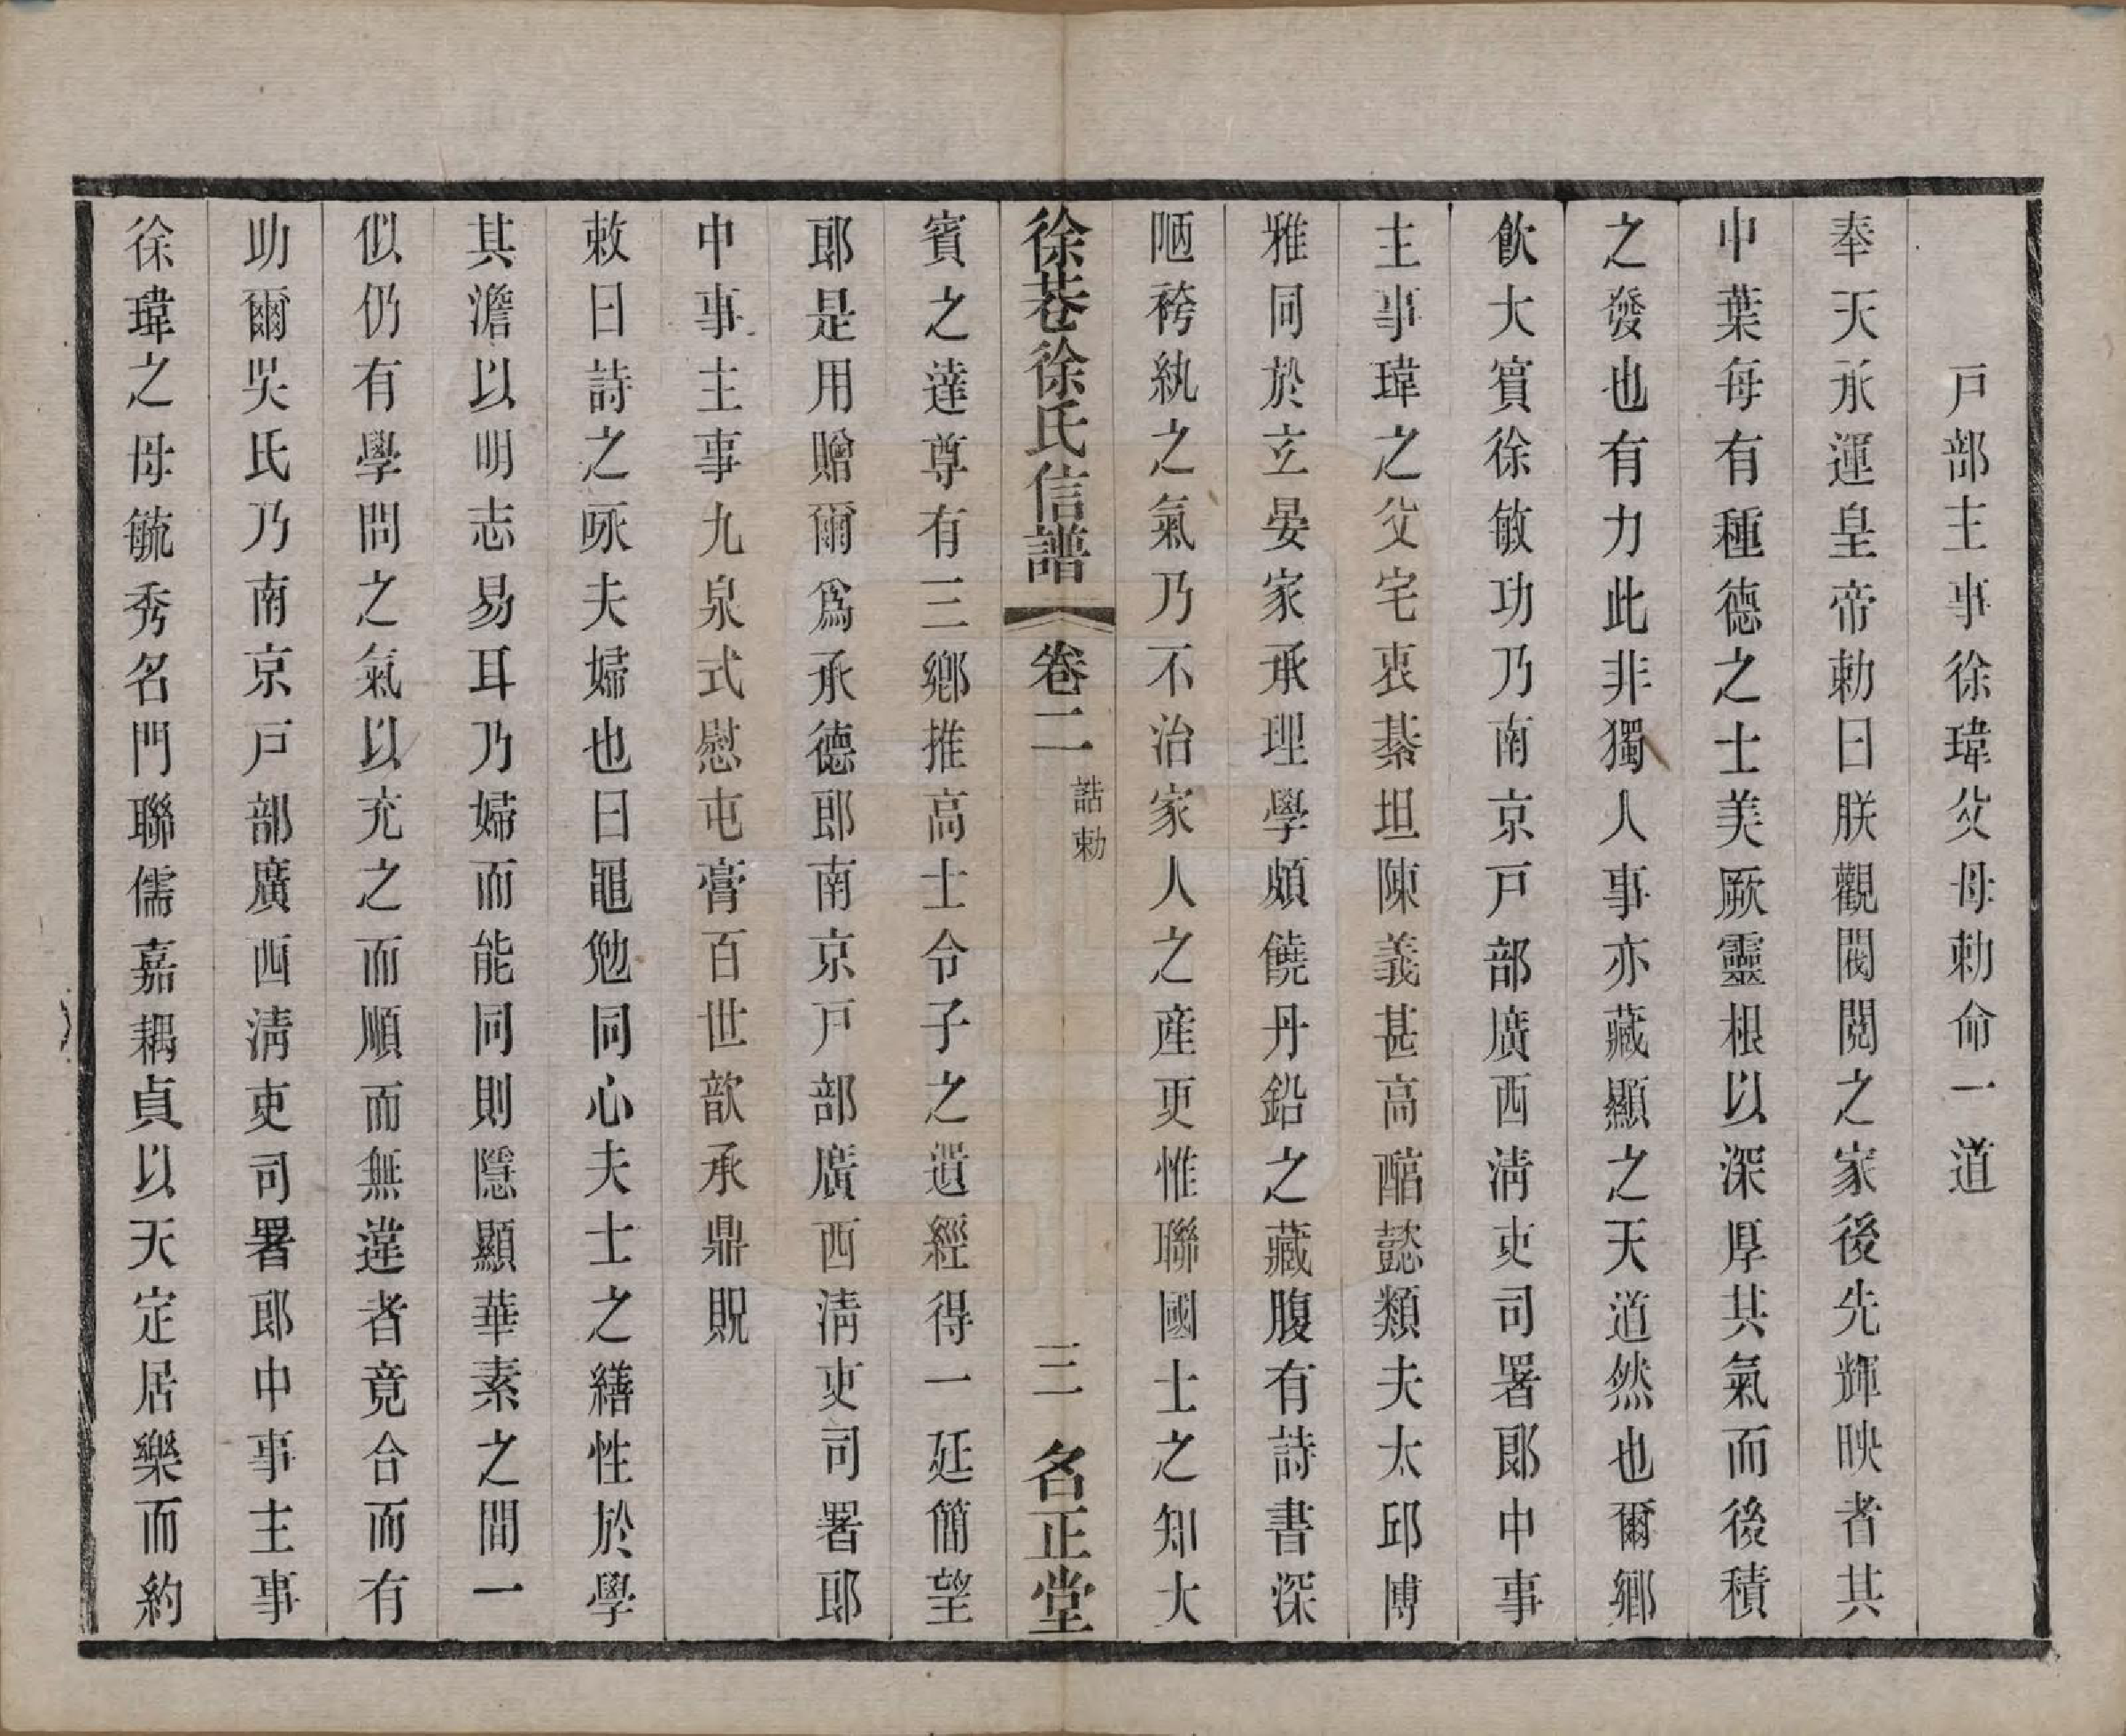 戸部主事徐瑋父母勅命一道
奉天承運皇帝勅曰朕觀閥閱之家後先輝映者其
中葉每有種德之士美厥靈根以深厚其氣而後積
之發也有力此非獨人事亦藏顯之天道然也爾鄉
飲大賓徐敏功乃南京戸部廣西清吏司署郎中事
主事瑋之父宅衷綦坦陳義甚高酷懿類夫太邱博
雅同於立晏家承理學頗饒丹鉛之藏腹有詩書深
陋袴紈之氣乃不治家人之產更惟聯國士之知大
徐巷徐氏信譜 卷二 誥勅 三 名正堂
賓之達尊有三鄉推高士令子之遺經得一延簡望
郎是用贈爾爲承德郎南京戸部廣西清吏司署郎
中事主事九泉式慰屯膏百世歆承鼎貺
敕曰詩之咏夫婦也曰黽勉同心夫士之繕性於學
其澹以明志易耳乃婦而能同則隱顯華素之間一
似仍有學問之氣以充之而順而無違者竟合而有
助爾吳氏乃南京戸部廣西清吏司署郎中事主事
徐瑋之母毓秀名門聯儒嘉耦貞以天定居樂而約